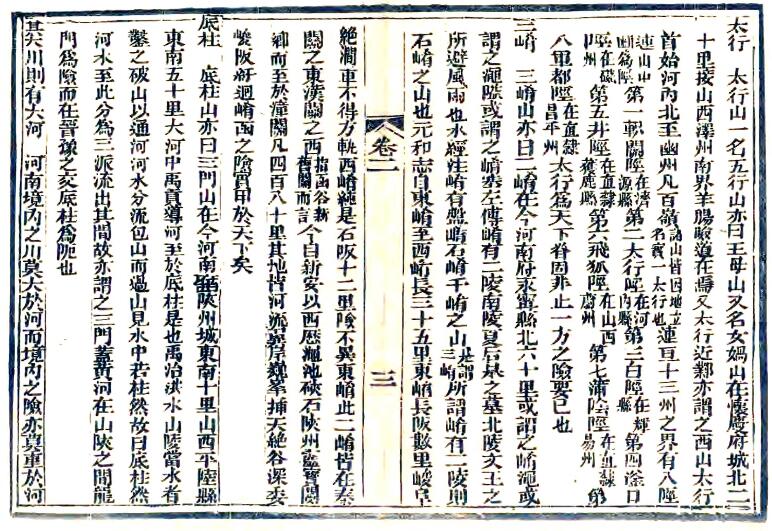 太行　太行山一名五行山亦曰王母山又名女媧山在懷慶府城北二
十里接山西澤州南界羊腸險道在焉又太行近鄴亦謂之西山太行
首始河內北至幽州凡百嶺諸山皆因地立名實一太行也連亘十三州之界有八陘
連山中斷為陘第一軹關陘在濟源縣第二太行陘在河內縣第三白陘在輝縣第四滏口
陘在磁州第五井陘在直隸獲鹿縣第六飛狐陘在山西蔚州第七蒲陰陘在直隸易州第
八軍都陘在直隸昌平州太行為天下脊固非止一方之險要已也
三崤　三崤山亦曰二崤在今河南府永寧縣北六十里或謂之崤澠或
謂之澠隘或謂之崤塞左傳崤有二陵南陵夏后臯之墓北陵文王之
所避風雨也水經注崤有盤崤石崤千崤之山是謂三崤所謂崤有二陵則
石崤之山也元和志自東崤至西崤長三十五里東崤長阪數里峻阜
卷二
三
絕澗車不得方軌西崤純是石阪十二里險不異東崤此二崤皆在秦
關之東漢關之西指函谷新舊關而言今自新安以西歷澠池硤石陝州靈寶閿
鄉而至於潼關凡四百八十里其地皆河流翼岸巍峯插天絕谷深委
峻阪紆迴崤函之險實甲於天下矣
底柱　底柱山亦曰三門山在今河南省陝州城東南十里山西平陸縣
東南五十里大河中禹貢導河至於底柱是也禹治洪水山陵當水者
鑿之破山以通河河水分流包山而過山見水中若柱然故曰底柱然
河水至此分為三派流出其間故亦謂之三門葢黃河在山陝之間龍
門為險而在晉豫之交底柱為阨也
其大川則有大河　河南境內之川莫大於河而境內之險亦莫重於河